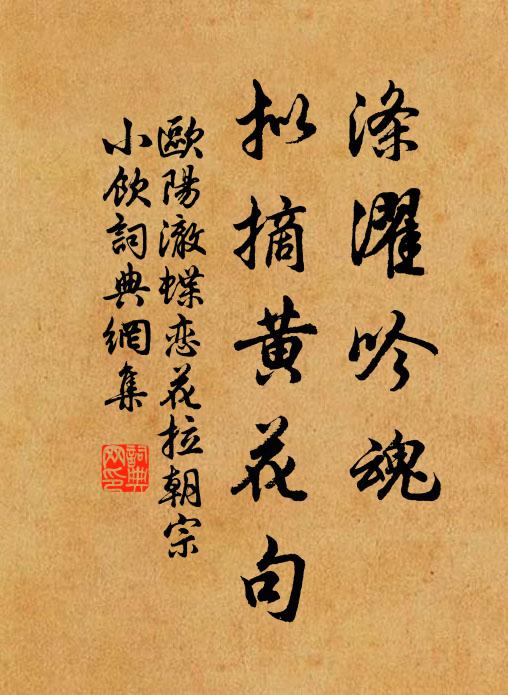 涤濯吟魂
拟摘黄花句
歐陽澈蝶恋花拉朝宗
小飲詞典網集
詞典
网印